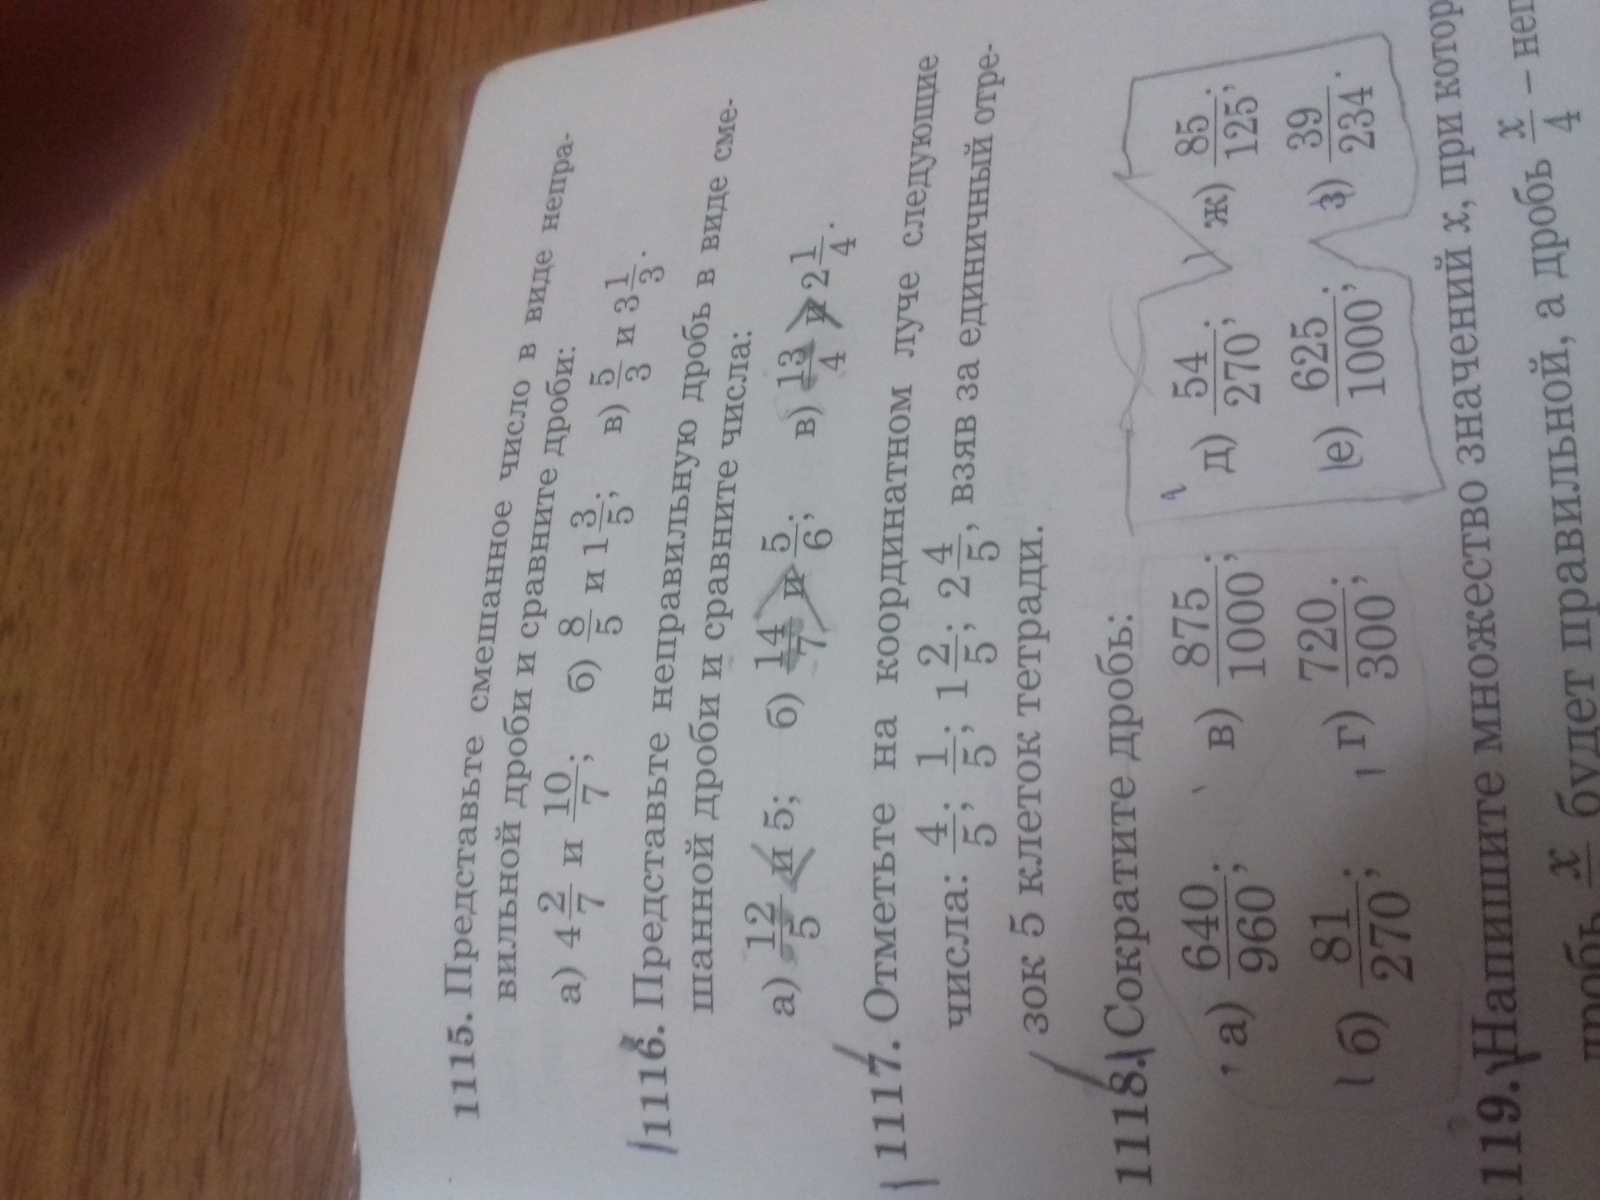 1115. Представьте смешанное число в виде непра-
вильной дроби и сравните дроби:
а) 4 2/7 и 10/7; б) 8/5 и 1 3/5; в) 5/3 и 3 1/3.
1116. Представьте неправильную дробь в виде сме-
шанной дроби и сравните числа:
а) 12/5 и 5; б) 14/7 и 5/6; в) 13/4 и 2 1/4.
1117. Отметьте на координатном луче следующие
числа: 4/5; 1/5; 1 2/5; 2 4/5, взяв за единичный отре-
зок 5 клеток тетради.
1118. Сократите дробь:
а) 640/960; в) 875/1000; д) 54/270; ж) 85/125;
б) 81/270; г) 720/300; е) 625/1000; з) 39/234.
119. Напишите множество значений x, при котор
дробь x/ будет правильной, а дробь x/4 – неп